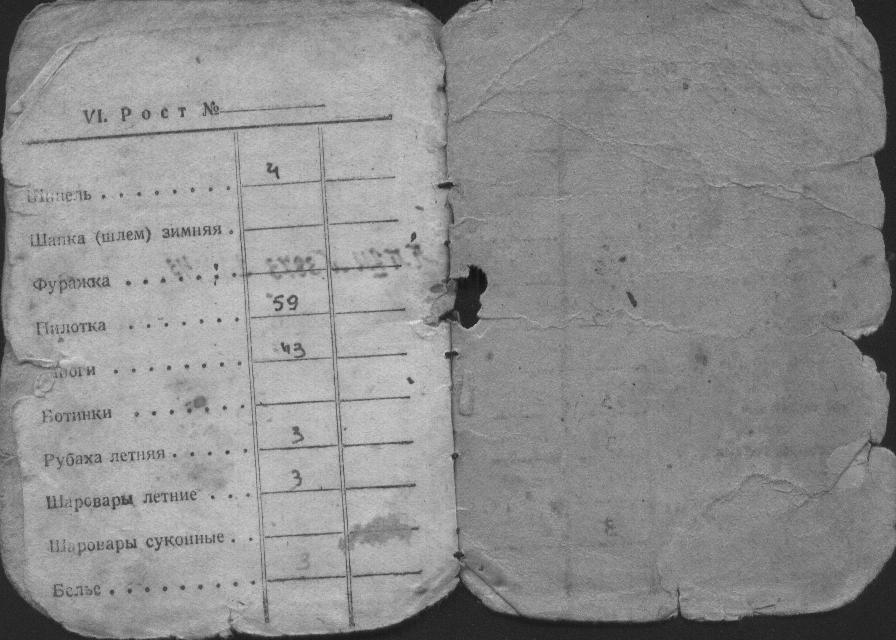 VI. Рост №
Шинель . . . . . . . . 4
Шапка (шлем) зимняя .
Фуражка . . . . . . .
Пилотка . . . . . . . 59
Сапоги . . . . . . . . 43
Ботинки . . . . . . .
Рубаха летняя . . . . . 3
Шаровары летние . . . 3
Шаровары суконные . .
Белье . . . . . . . . . . 3